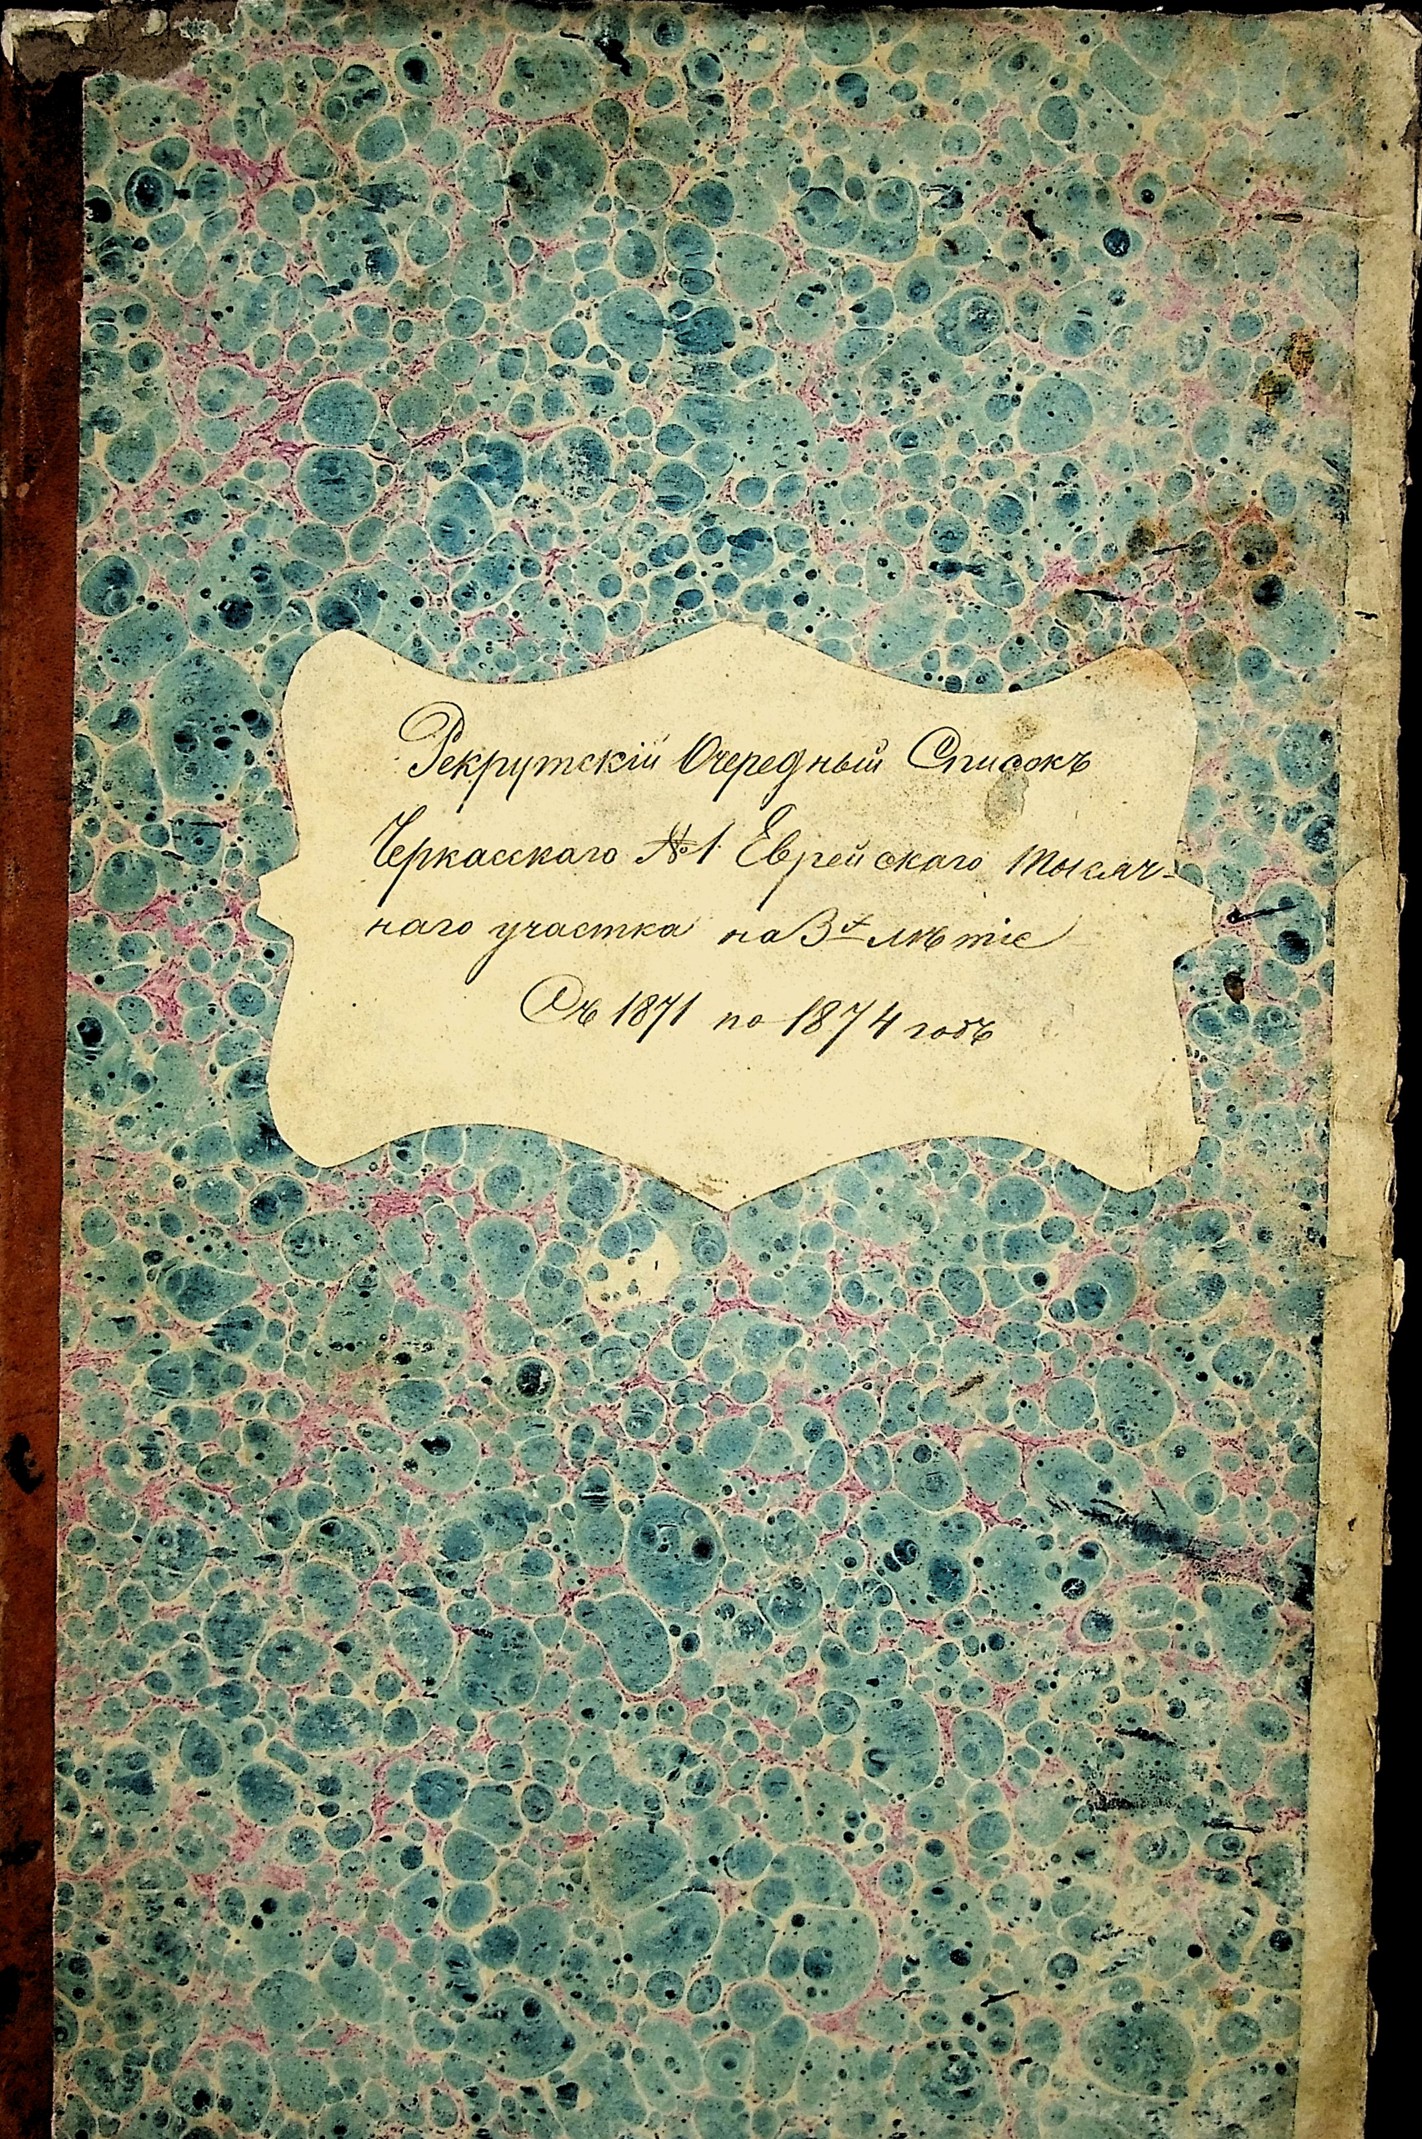 Рекрутскій Очередный Списокъ
Черкасскаго №1 Еврейскаго тысяч-
наго участка на 3х лѣтіе
Съ 1871 по 1874 годъ